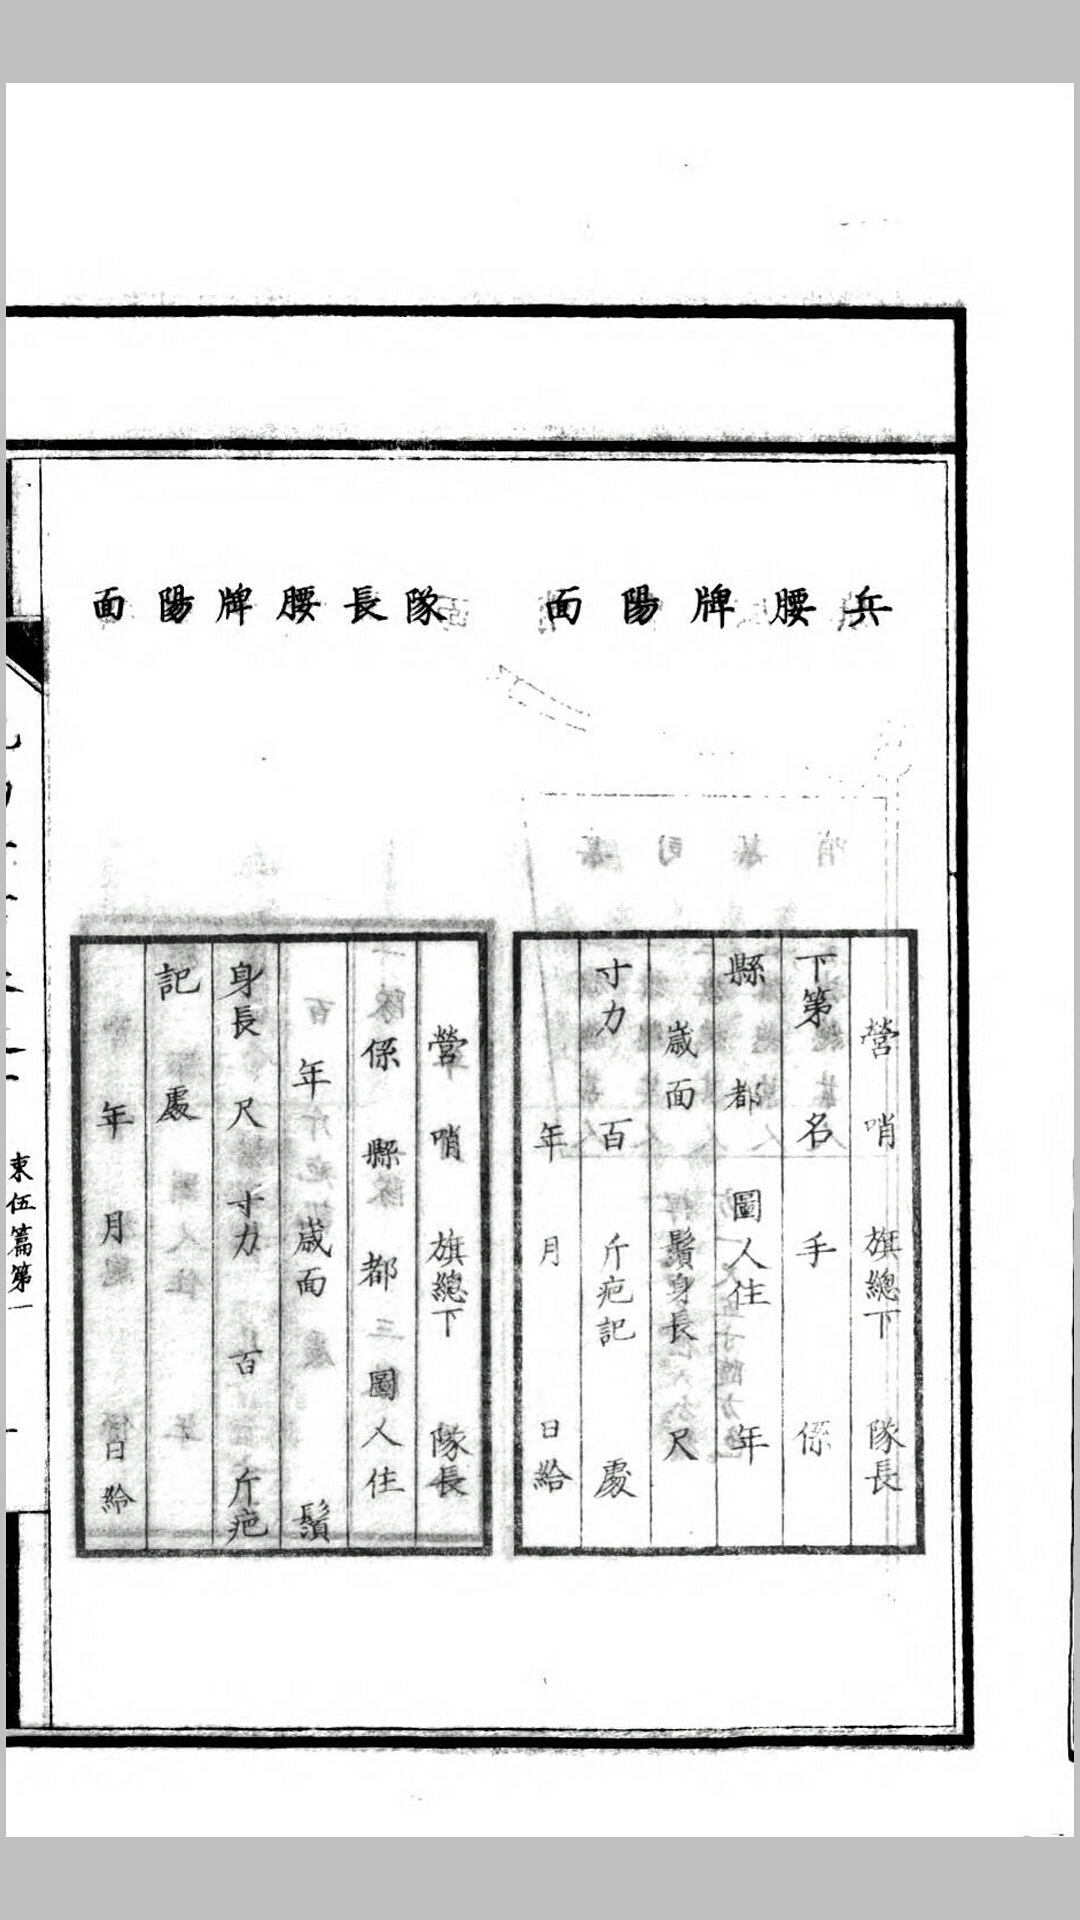 兵腰牌陽面
營 哨 旗總下 隊長
下第 名 手 係
縣 都 圖人住 年
歲面 鬚身長 尺
寸力 百 斤疤記 處
年 月 日給
隊長腰牌陽面
營 哨 旗總下 隊長
係 縣 都 圖人住
年 歲面 鬚
身長 尺 寸力 百 斤疤
記 處
年 月 日給
束伍篇第一